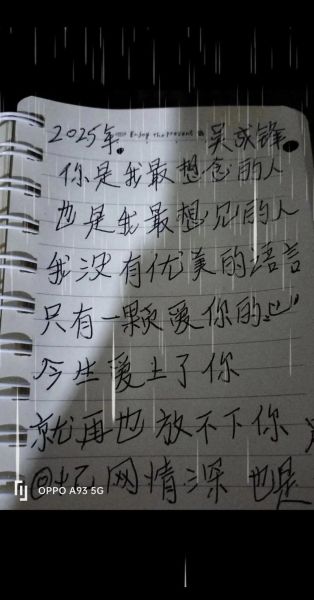 Enjoy the present
2025年 吴成锋
你是我最想念的人
也是我最想见的人
我没有优美的语言
只有一颗爱你的心
今生爱上了你
就再也放不下你
网情深 也是
OPPO A93 5G